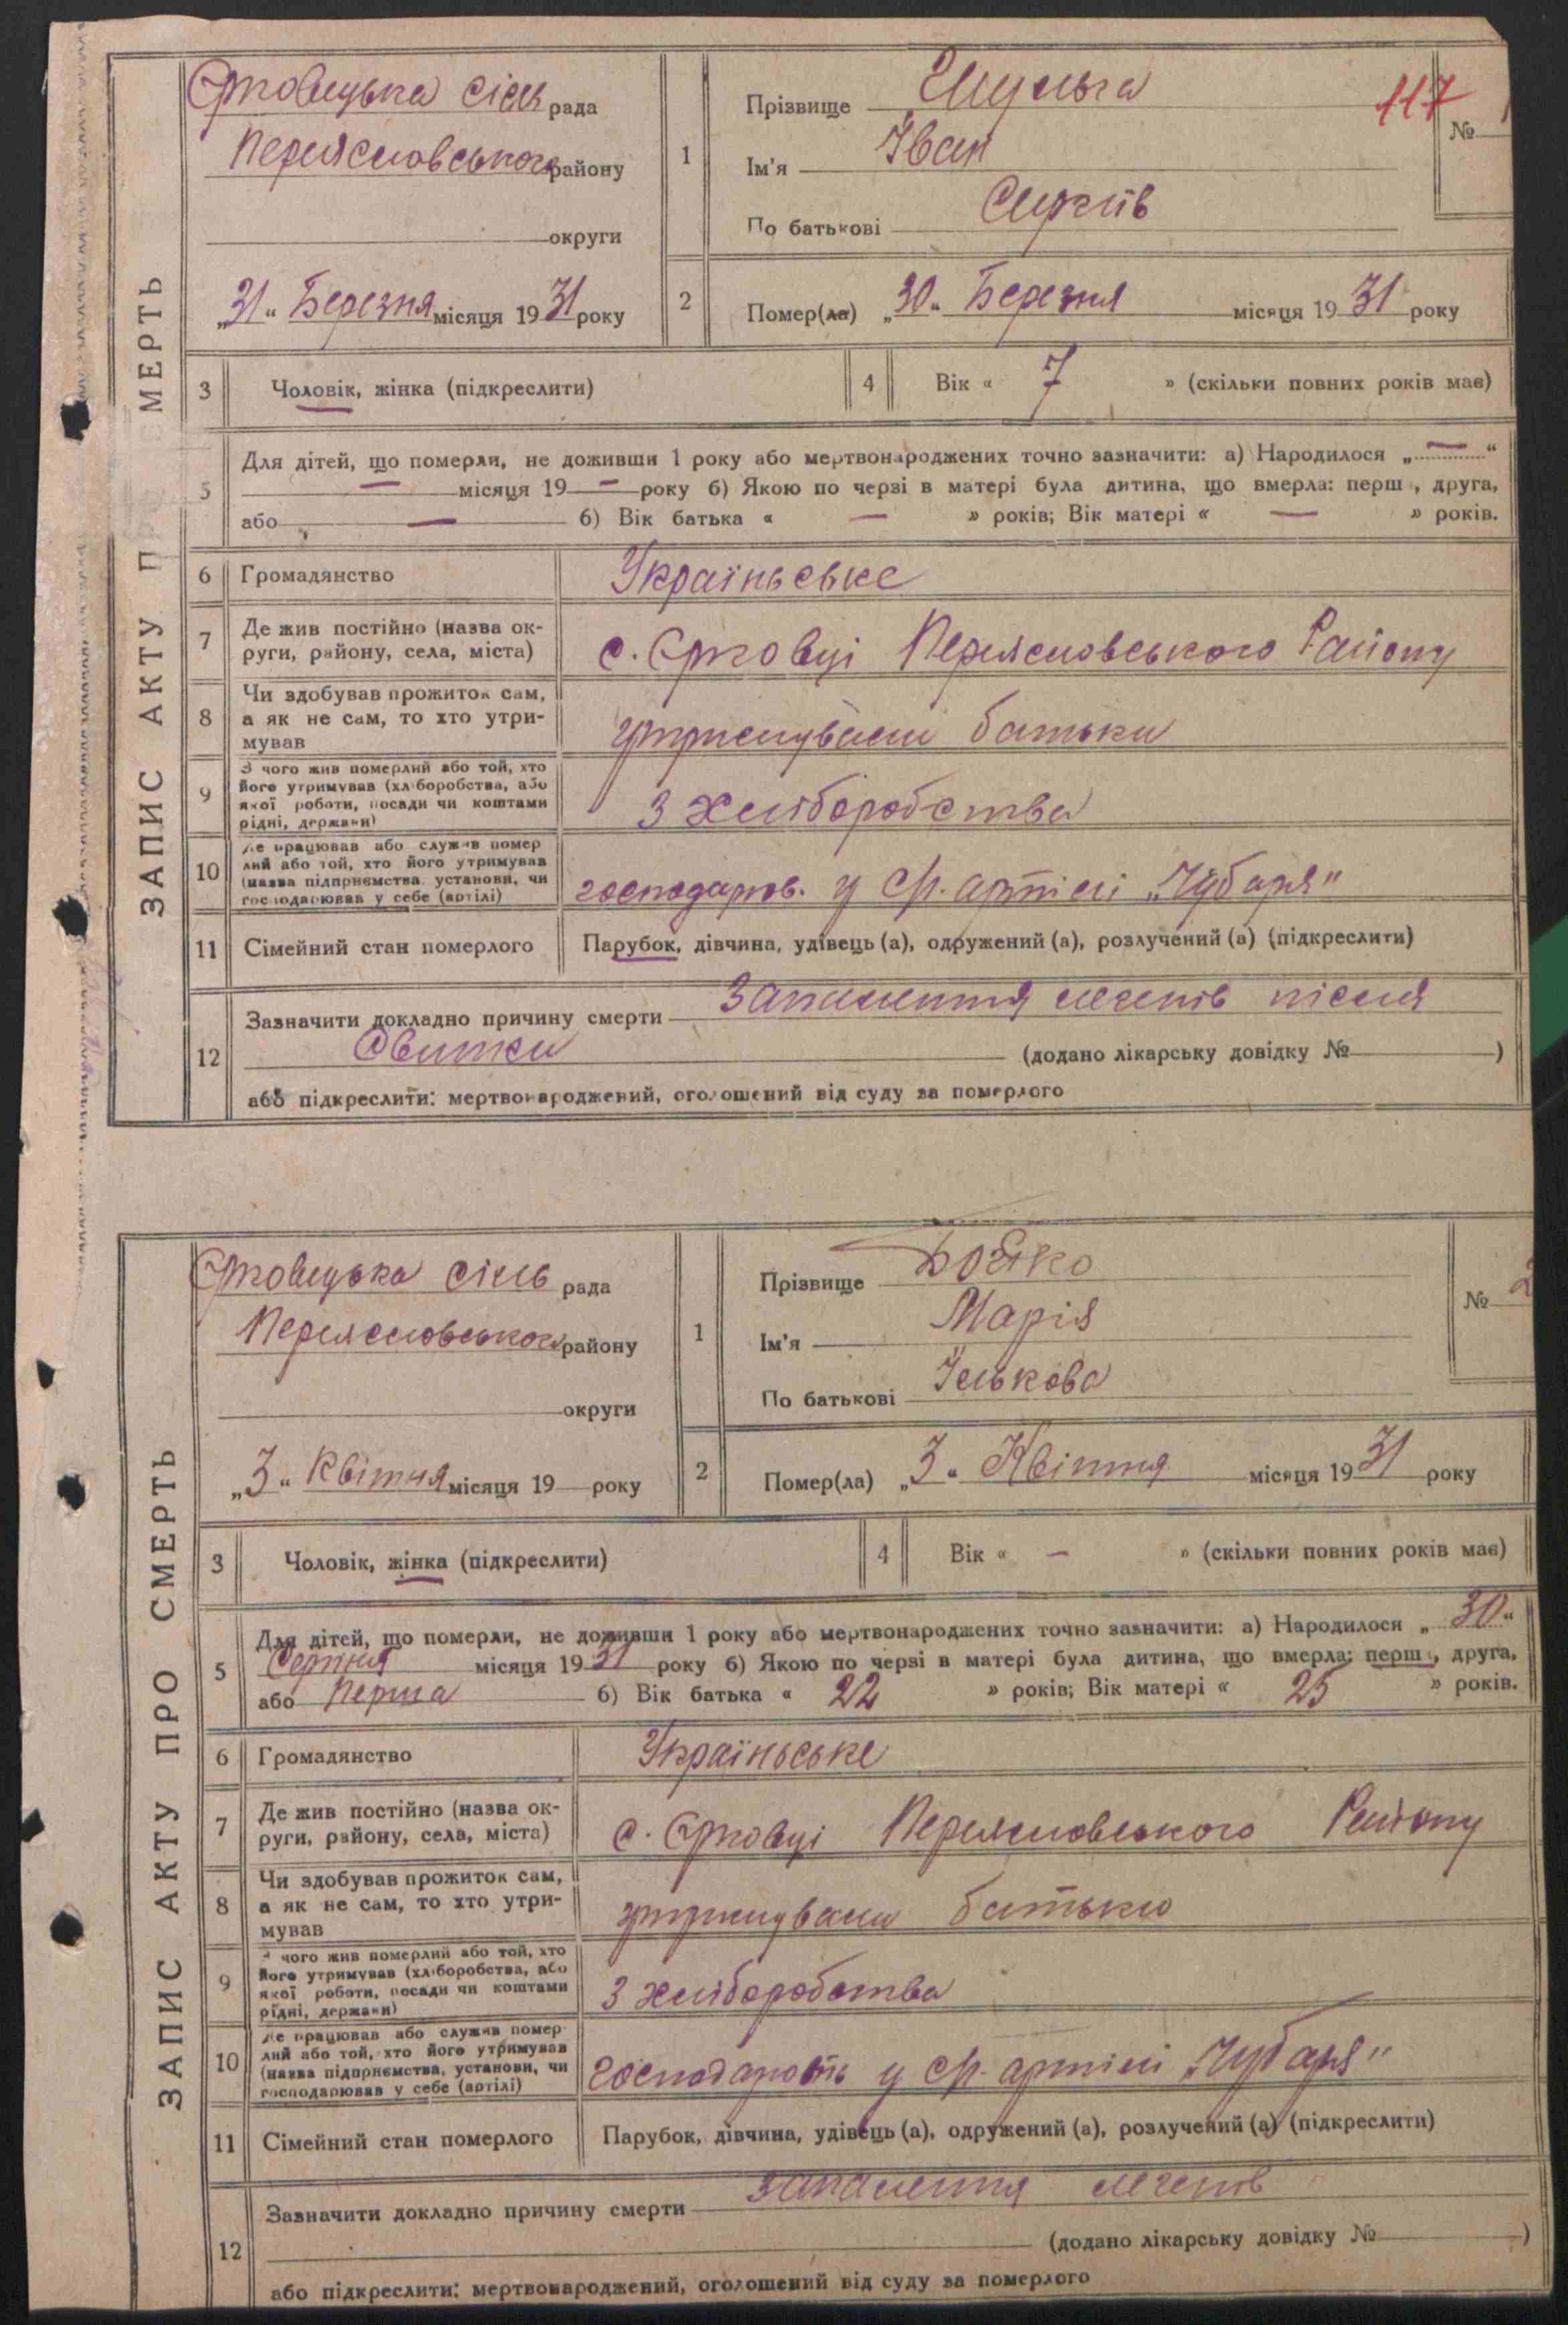 ЗАПИС АКТУ ПРО СМЕРТЬ
Єрковецька сіль рада
Переяславського району
округи
„31“ Березня місяця 1931 року
1
Прізвище Шульга
117
№
Ім'я Іван
По батькові Сиргіїв
2
Помер(ла) „30“ Березня місяця 1931 року
3 Чоловік, жінка (підкреслити)
4 Вік « 7 » (скільки повних років має)
5
Для дітей, що померли, не доживши 1 року або мертвонароджених точно зазначити: а) Народилося „—“
— місяця 19 — року б) Якою по черзі в матері була дитина, що вмерла: перш, друга,
або — б) Вік батька « — » років; Вік матері « — » років.
6 Громадянство Україньське
7 Де жив постійно (назва ок-
руги, району, села, міста) с. Єрковці Переяславського Району
8 Чи здобував прожиток сам,
а як не сам, то хто утри-
мував утримували батьки
9 З чого жив померлий або той, хто
його утримував (хліборобства, або
якої роботи, посади чи коштами
рідні, держави) З хліборобства
10 Де працював або служив помер
лий або той, хто його утримував
(назва підприємства, установи, чи
господарював у себе (артілі) господарюв. у С/г. артілі „Чубаря"
11 Сімейний стан померлого Парубок, дівчина, удівець (а), одружений (а), розлучений (а) (підкреслити)
12
Зазначити докладно причину смерти Запалення легенів після
(додано лікарську довідку № )
або підкреслити: мертвонароджений, оголошений від суду за померлого
ЗАПИС АКТУ ПРО СМЕРТЬ
Єрковецька сіль рада
Переяславського району
округи
„3“ Квітня місяця 19 року
1
Прізвище Бойко
№ 2
Ім'я Марія
По батькові Ількова
2
Помер(ла) „3“ Квітня місяця 1931 року
3 Чоловік, жінка (підкреслити)
4 Вік « — » (скільки повних років має)
5
Для дітей, що померли, не доживши 1 року або мертвонароджених точно зазначити: а) Народилося „30“
Серпня місяця 1931 року б) Якою по черзі в матері була дитина, що вмерла: перш, друга,
або перша б) Вік батька « 22 » років; Вік матері « 25 » років.
6 Громадянство Україньське
7 Де жив постійно (назва ок-
руги, району, села, міста) с. Єрковці Переяславського Району
8 Чи здобував прожиток сам,
а як не сам, то хто утри-
мував утримували батьки
9 З чого жив померлий або той, хто
його утримував (хліборобства, або
якої роботи, посади чи коштами
рідні, держави) З хліборобства
10 Де працював або служив помер
лий або той, хто його утримував
(назва підприємства, установи, чи
господарював у себе (артілі) у с/г. артілі „Чубаря"
11 Сімейний стан померлого Парубок, дівчина, удівець (а), одружений (а), розлучений (а) (підкреслити)
12
Зазначити докладно причину смерти запалення легенів
(додано лікарську довідку № )
або підкреслити: мертвонароджений, оголошений від суду за померлого